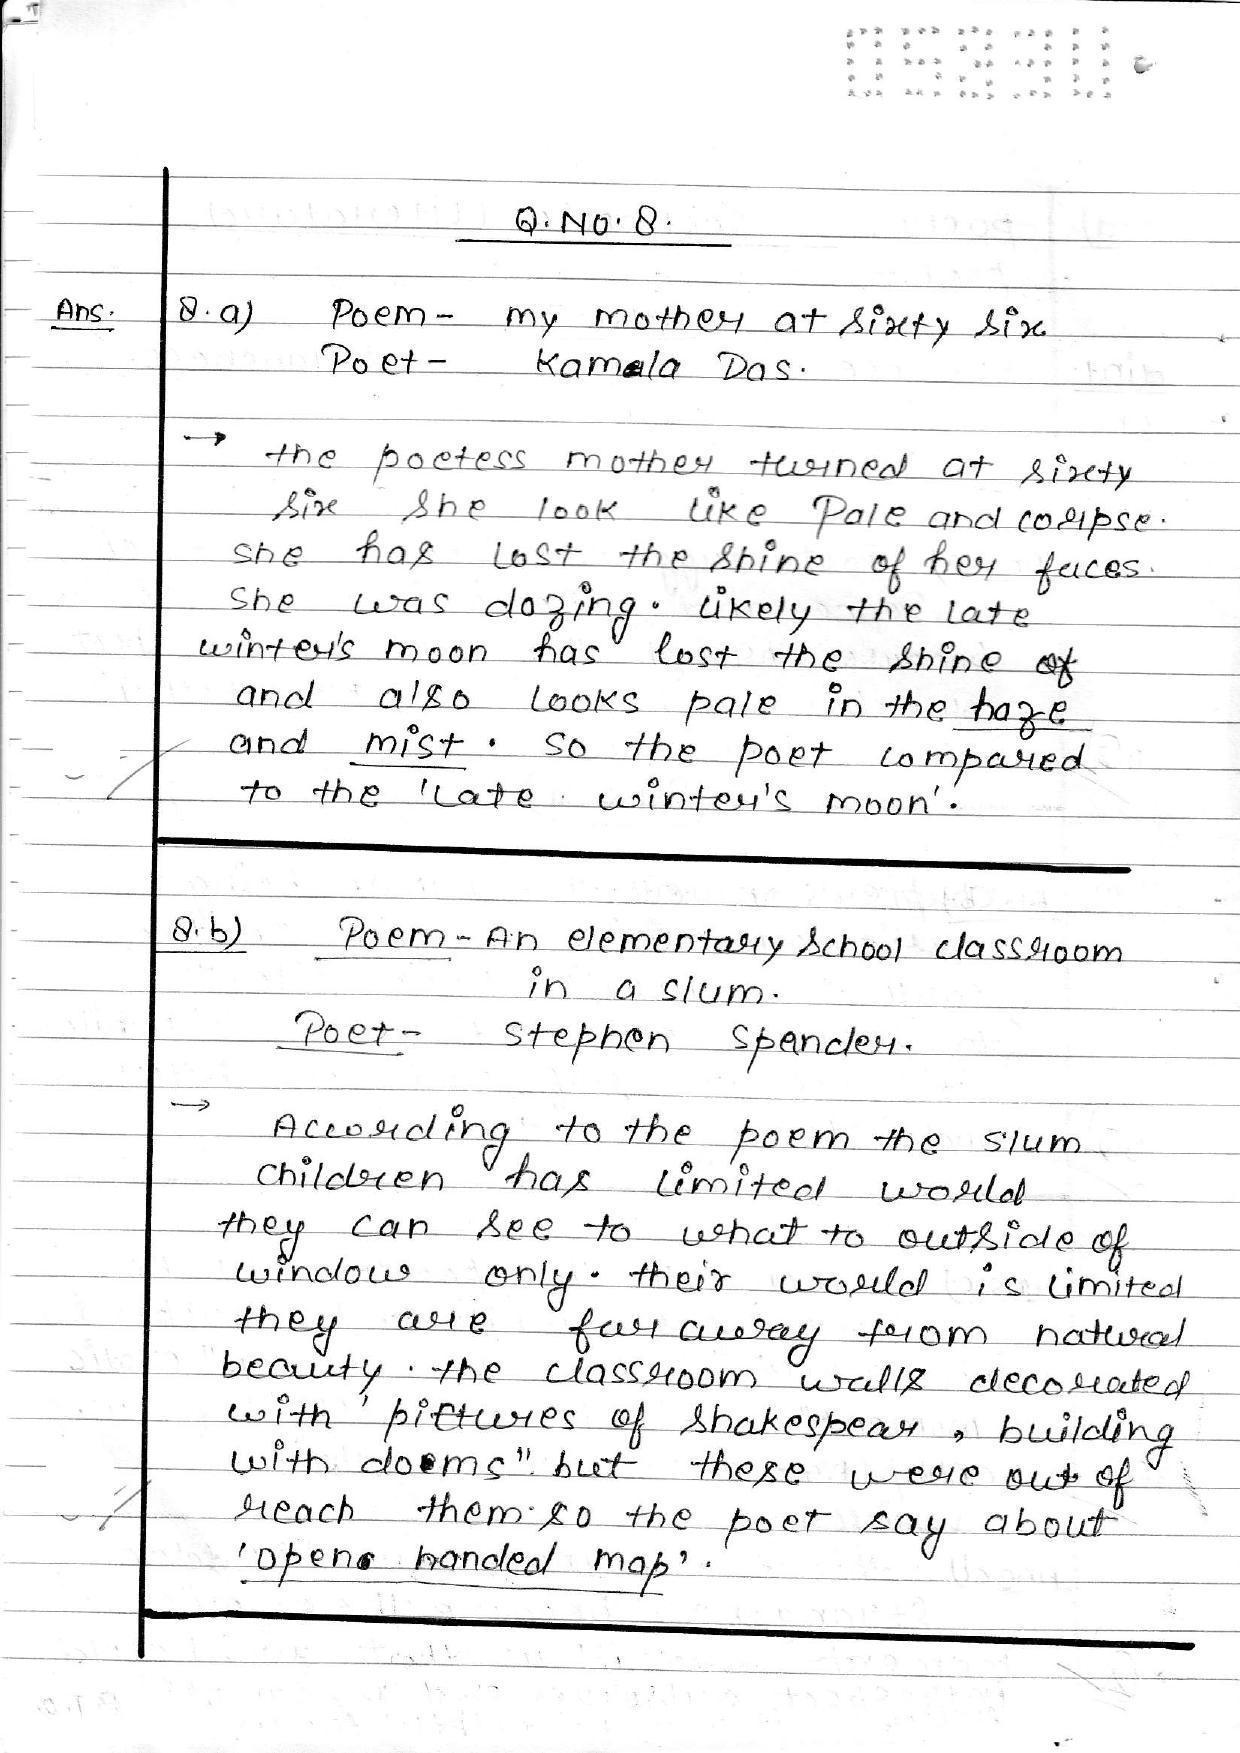 Q. No. 8.
Ans. 8. a) Poem - my mother at sixty six
Poet - Kamala Das.
→ the poetess mother turned at sixty
six she look like Pale and corpse.
she has lost the shine of her faces.
She was dozing. likely the late
winter's moon has lost the shine of
and also looks pale in the haze
and mist. so the poet compared
to the 'late winter's moon'.
8. b) Poem - An elementary School classroom
in a slum.
Poet - Stephen Spander.
→ According to the poem the slum
children has limited world
they can see to what to outside of
window only. their world is limited
they are far away from natural
beauty. the classroom walls decorated
with 'pictures of shakespear, building
with doems" but these were out of
reach them. so the poet say about
'open handed map'.